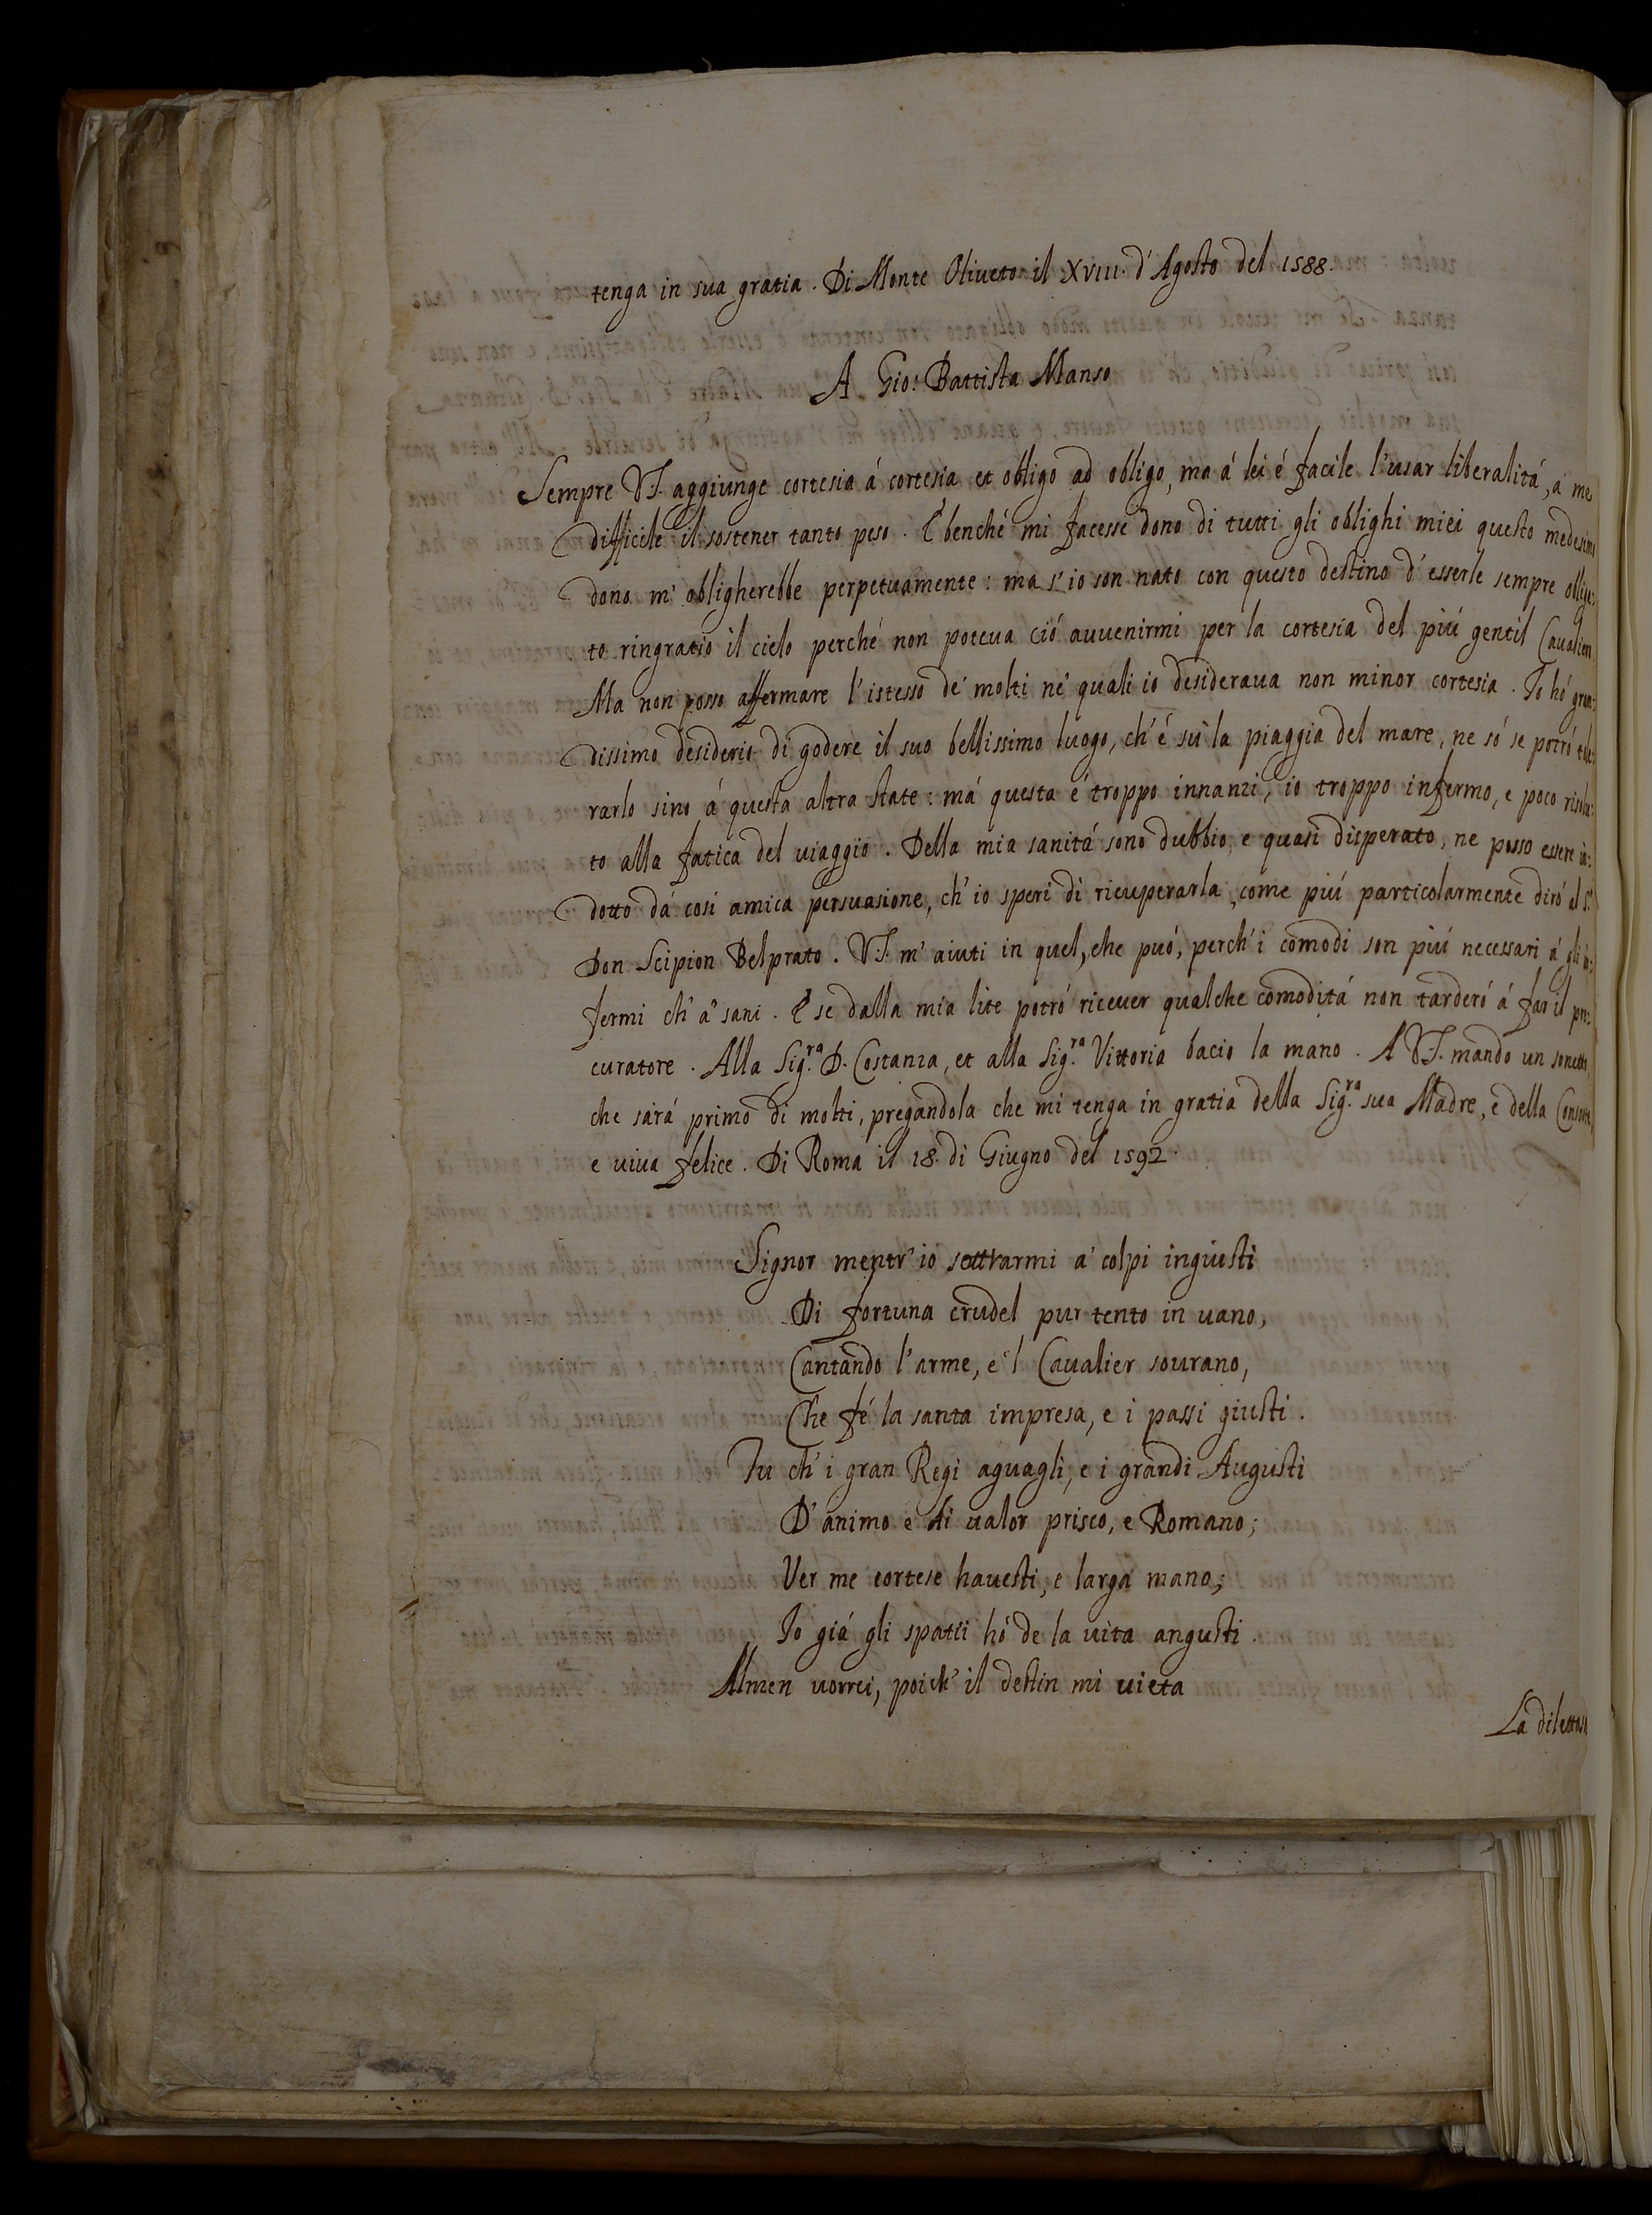 tenga in sua gratia. Di Monte Oliueto il XVIII. d'Agosto del 1588.
A Gio: Battista Manso
Sempre VS. aggiunge cortesia á cortesia et obligo ad obligo, ma á lei é facile l'usar liberalitá, á me
difficile il sostener tanto peso. E benché mi facesse dono di tutti gli oblighi miei questo medesimo
dono m' obligherebbe perpetuamente: ma s'io son nato con questo destino d' esserle sempre obliga:
to ringratio il cielo perché non poteua ció auuenirmi per la cortesia del piú gentil Caualiero.
Ma non posso affermare l'istesso de' molti ne' quali io desideraua non minor cortesia. Io hó gran:
dissimo desiderio di godere il suo bellissimo luogo, ch' é sù la piaggia del mare, ne só se potró
rarlo sino á questa altra state: má questa é troppo innanzi, io troppo infermo, e poco risolu:
to alla fatica del uiaggio. Della mia sanitá sono dubbio, e quasi disperato, ne posso essere in:
dotto dá cosi amica persuasione, ch' io speri di ricuperarla, come piú particolarmente diró al S.r
Don Scipion Belprato. VS. m' aiuti in quel, che puó, perch' i comodi son piú necessari á gli in:
fermi ch' a' sani. E se dalla mia lite potró riceuer qualche comoditá non tarderó á far il pro:
curatore. Alla Sig.ra D. Costanza, et alla Sig.ra Vittoria bacio la mano. A VS. mando un sonetto,
che sará primo di molti, pregandola che mi tenga in gratia della Sig.ra sua Madre, e della Consorte,
e uiua felice. Di Roma il 18. di Giugno del 1592.
Signor mentr' io sottrarmi a' colpi ingiusti
Di fortuna crudel pur tento in uano,
Cantando l'arme, e 'l Caualier sourano,
Che fé la santa impresa, e i passi giusti.
Tu ch' i gran Regi aguagli, e i grandi Augusti
D' animo e di ualor prisco, e Romano;
Ver me cortese hauesti, e larga mano;
Io giá gli spatii hó de la uita angusti.
Almen uorrei, poich' il destin mi uieta
La